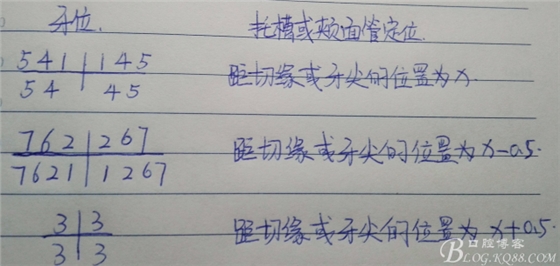 牙位. 托槽或颊面管定位.
541|145
54|45
距切缘或牙尖的位置为x.
762|267
7621|1267
距切缘或牙尖的位置为x-0.5.
3|3
3|3
距切缘或牙尖的位置为x+0.5.
口腔博客
BLOG.KQ88.COM